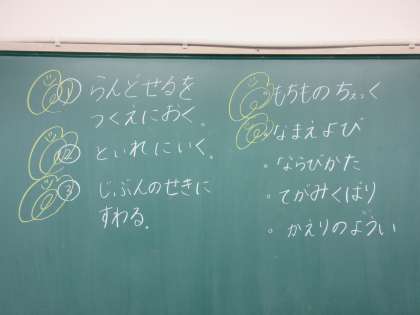 ① らんどせるを
つくえにおく。
② といれにいく。
③ じぶんのせきに
すわる。
もちものちぇっく
なまえよび
・ならびかた
・てがみくばり
・かえりのようい